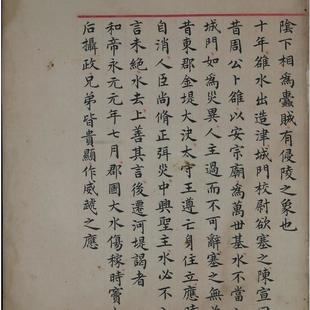 陰下相爲蠹賊有侵陵之象也
十年雒水出造津城門校尉欲塞之陳宣曰
昔周公卜雒以安宗廟爲萬世基水不當
城門如爲災異人主過而不可辭塞之無
昔東郡金堤大決太守王遵亡身住立應時
自消人臣尚脩正弭災中興聖主水必不
言未絶水去上善其言後遷河堤謁者
和帝永元元年七月郡國大水傷稼時竇
后攝政兄弟皆貴顯作威虣之應